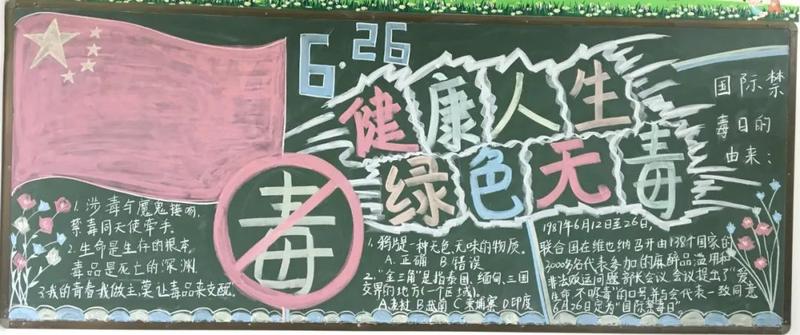 6.26
健康人生
绿色无毒
国际禁
毒日的
由来:
毒
1.涉毒与魔鬼接吻,
禁毒同天使牵手。
2.生命是生存的根本,
毒品是死亡的深渊
3.我的青春我做主,莫让毒品来支配。
1.鸦片是一种无色无味的物质。
A.正确 B.错误
2."金三角"是指泰国、缅甸、三国
交界的地方(一个区域)。
A.老挝 B.越南 C.柬埔寨 D.印度
1987年6月12日至26日,
联合国在维也纳召开由138个国家的
3000多名代表参加的麻醉品滥用和
非法贩运问题部长会议 会议提出了"爱
生命 不吸毒"的口号,并与会代表一致同意
6月26日定为"国际禁毒日"